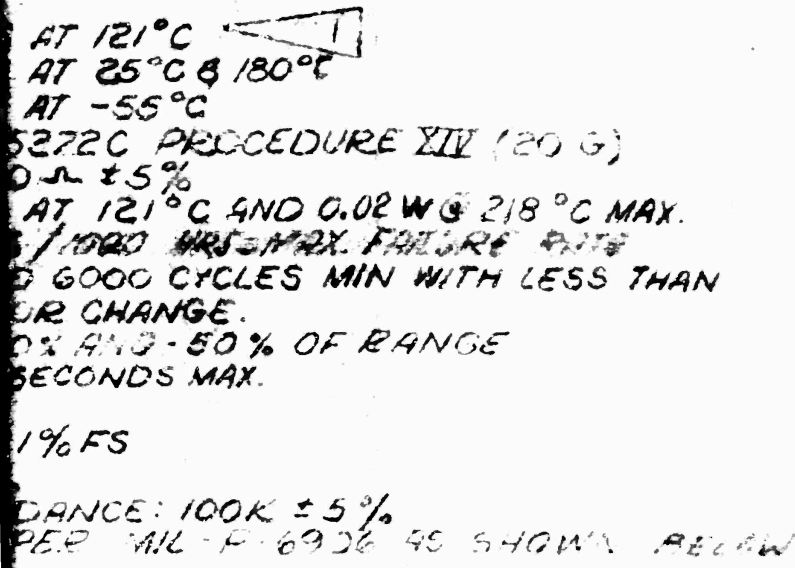 AT 121°C 1
AT 25°C & 180°C
AT -55°C
5272C PROCEDURE XIV (20 G)
Ω ±5%
AT 121°C AND 0.02 W @ 218 °C MAX.
/1000 HRS. MAX. FAILURE RATE
6000 CYCLES MIN WITH LESS THAN
OR CHANGE.
% AND -50% OF RANGE
SECONDS MAX.
1% FS
DANCE: 100K ±5%
PER MIL-P-6906 AS SHOWN BELOW